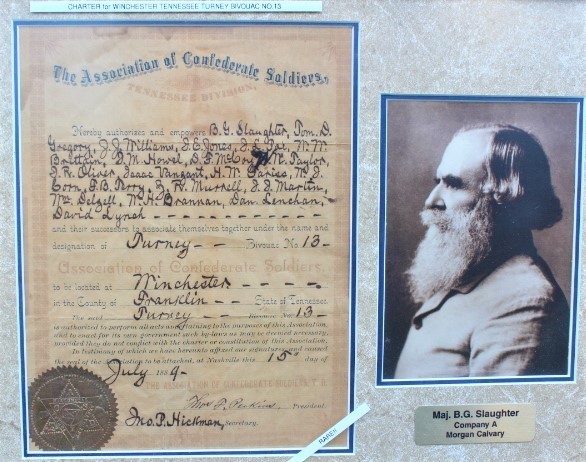 CHARTER for WINCHESTER TENNESSEE TURNEY BIVOUAC NO.13
The Association of Confederate Soldiers,
TENNESSEE DIVISION,
Hereby authorizes and empowers B.G. Slaughter, Tom. D.
Gregory, J.J. Williams, J.E. Jones, W.W.
Brittain, Howel, Taylor,
J.R. Oliver, Isaac Vanzant, H.W. J.
Corn, Perry, Z. R. Murrell, J.J. Martin,
Wm. W.H. Brannan, Dan. Lenehan,
David Lynch
and their successors to associate themselves together under the name and
designation of Turney - - Bivouac No 13 -
Association of Confederate Soldiers.
to be located at Winchester - - - -
in the County of Franklin - - State of Tennessee.
The said Turney - - Bivouac No. 13 -
is authorized to perform all acts to the purposes of this Association,
and to enact for its own government such by-laws as may be deemed necessary,
provided they do not conflict with the charter or constitution of this Association.
In testimony of which we have hereunto affixed our signatures and caused
the seal of the Association to be attached, at Nashville this 15 day of
July 1889-
Perkins President.
Jno. P. Hickman, Secretary.
RARE!!
Maj. B.G. Slaughter
Company A
Morgan Calvary